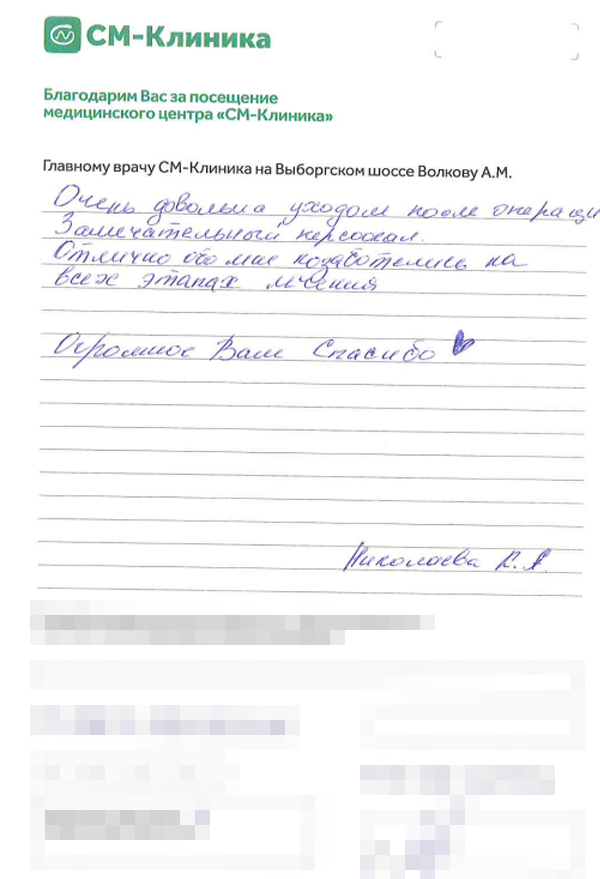 СМ-Клиника
Благодарим Вас за посещение
медицинского центра «СМ-Клиника»
Главному врачу СМ-Клиника на Выборгском шоссе Волкову А.М.
Очень довольна уходом после операци
Замечательный персонал.
Отлично обо мне позаботились на
всех этапах лечения
Огромное Вам Спасибо
Николаева К.А.